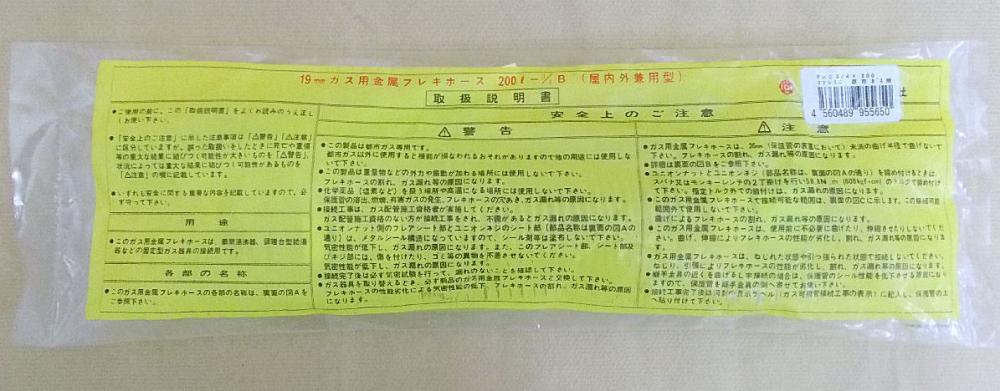 19mm ガス用金属フレキホース 200ℓ-/B (屋内外兼用型)
取扱説明書
4 560489 955650
社
●ご使用の前に、この「取扱説明書」をよくお読みのうえ正し
くお使い下さい。
●「安全上のご注意」に示した注意事項は「⚠警告」「⚠注意」
に区分していますが、誤った取扱いをしたときに死亡や重傷
等の重大な結果に結びつく可能性が大きいものを「⚠警告」、
状況によっては重大な結果に結びつく可能性があるものを
「⚠注意」の欄に記載しています。
●いずれも安全に関する重要な内容を記載していますので、必
ず守って下さい。
用途
●このガス用金属フレキホースは、瞬間湯沸器、調理台型給湯
器などの固定型ガス器具の接続用です。
各部の名称
●このガス用金属フレキホースの各部の名称は、裏面の図Aを
ご参照下さい。
安全上のご注意
⚠ 警告
●この製品は都市ガス専用です。
都市ガス以外に使用すると機能が損なわれるおそれがありますので他の用途には使用しな
いで下さい。
●この製品は重量物などの外力や振動が加わる場所には使用しないで下さい。
フレキホースの割れ、ガス漏れ等の原因になります。
●化学薬品(塩素など)を扱う場所や高温になる場所には使用しないで下さい。
保護管の溶出、燃焼、有害ガスの発生、フレキホースの穴あき、ガス漏れ等の原因になります。
●接続工事は、ガス配管施工資格者が実施してください。
ガス配管施工資格のない方が接続工事をされ、不備があるとガス漏れの原因になります。
●ユニオンナット側のフレアシート部とユニオンネジのシート部(部品名称は裏面の図Aの
通り)は、メタルシール構造になっていますので、シール剤等は塗布しないで下さい。
気密性能が低下し、ガス漏れの原因になります。また、このフレアシート部、シート部及
びネジ部には、傷を付けたり、ゴミ等の異物を不着させないでください。
気密性能が低下し、ガス漏れの原因になります。
●接続完了後は必ず気密試験を行って、漏れのないことを確認して下さい。
●ガス器具を取り替えるとき、必ず新品のガス用金属フレキホースと交換して下さい。
フレキホースの性能劣化による気密性能の低下、フレキホースの割れ、ガス漏れ等の原因
になります。
⚠ 注意
●ガス用金属フレキホースは、
未満の曲げ半径で曲げないで
下さい。フレキホースの割れ、ガス漏れ等の原因になります。
●詳細は裏面の図Bをご参照下さい。
●ユニオンナットとユニオンネジ(部品名称は、裏面の図Aの通り)を締め付けるときは、
スパナ又はモンキーレンチの2丁掛けを行い
のトルクで締め付け
て下さい。指定トルク外での締付けは、ガス漏れの原因になります。
●ガス用金属フレキホースで接続可能な範囲は、裏面の図Cに示します。この接続可能
範囲外で使用しないで下さい。
曲げによるフレキホースの割れ、ガス漏れ等の原因になります。
●ガス用金属フレキホースは、使用前に不必要に曲げたり、伸縮させたりしないで下さ
い。曲げ、伸縮によりフレキホースの性能が劣化し、割れ、ガス漏れ等の原因になりま
す。
●ガス用金属フレキホースは、ねじれた状態や引っ張られた状態で接続しないでください。
ねじり、引張によりフレキホースの性能が劣化し、割れ、ガス漏れ等の原因になります。